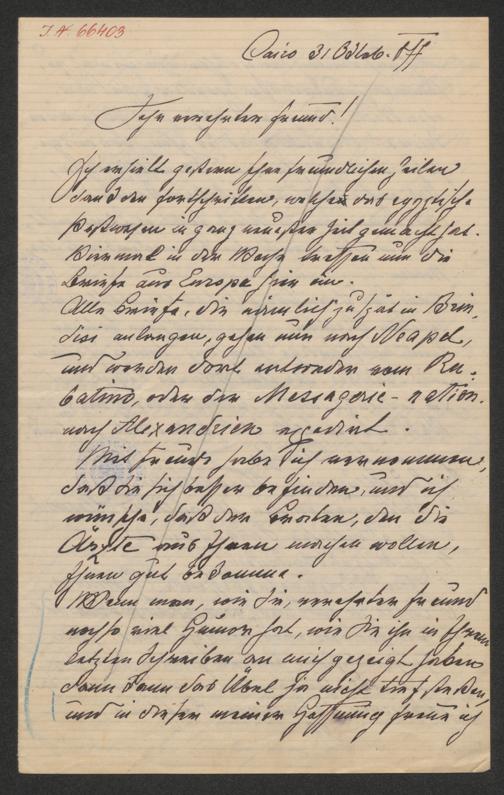 I.N. 66403
Cairo 31 Octob. 877
Sehr verehrter Freund!
Ich erhielt gestern Ihre freundlichen Zeilen
dank den Fortschritten, welche das egyptische
Postwesen in ganz neuester Zeit gemacht hat.
Viermal in der Woche treffen nun die
Briefe aus Europa hier ein.
Alle Briefe, die nämlich zu spät in Brin,
disi anlangen, gehen nun nach Neapel,
und werden dort entweder vom Ru,
batino, oder den Messagerie-nation.
nach Alexandrien expedirt.
Mit Freude habe ich vernommen,
daß Sie sich besser befinden, und ich
wünsche, daß der, den die
Ärzte aus Ihnen machen wollen,
Ihnen gut bekomme.
Wenn man, wie Sie, verehrter Freund
noch so viel Humor hat, wie Sie ihn in Ihrem
letzten Schreiben an mich gezeigt haben
dann kann das Übel ja nicht tief stecken,
und in dieser meiner Hoffnung freue ich